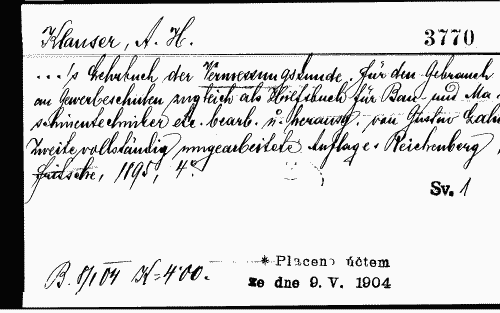 Klauser, A. H.
3770
...'s Lehrbuch der Vermessungskunde. Für den Gebrauch
an Gewerbeschulen zugleich als Hilfsbuch für Bau- und Ma-
schinentechniker etc. bearb. u. herausg. von Gustav
Zweite vollständig umgearbeitete Auflage. Reichenberg
Fritsche, 1895, 4°.
Sv. 1
* Placeno účtem
ze dne 9. V. 1904
B. 8/1 04 K=4·00.